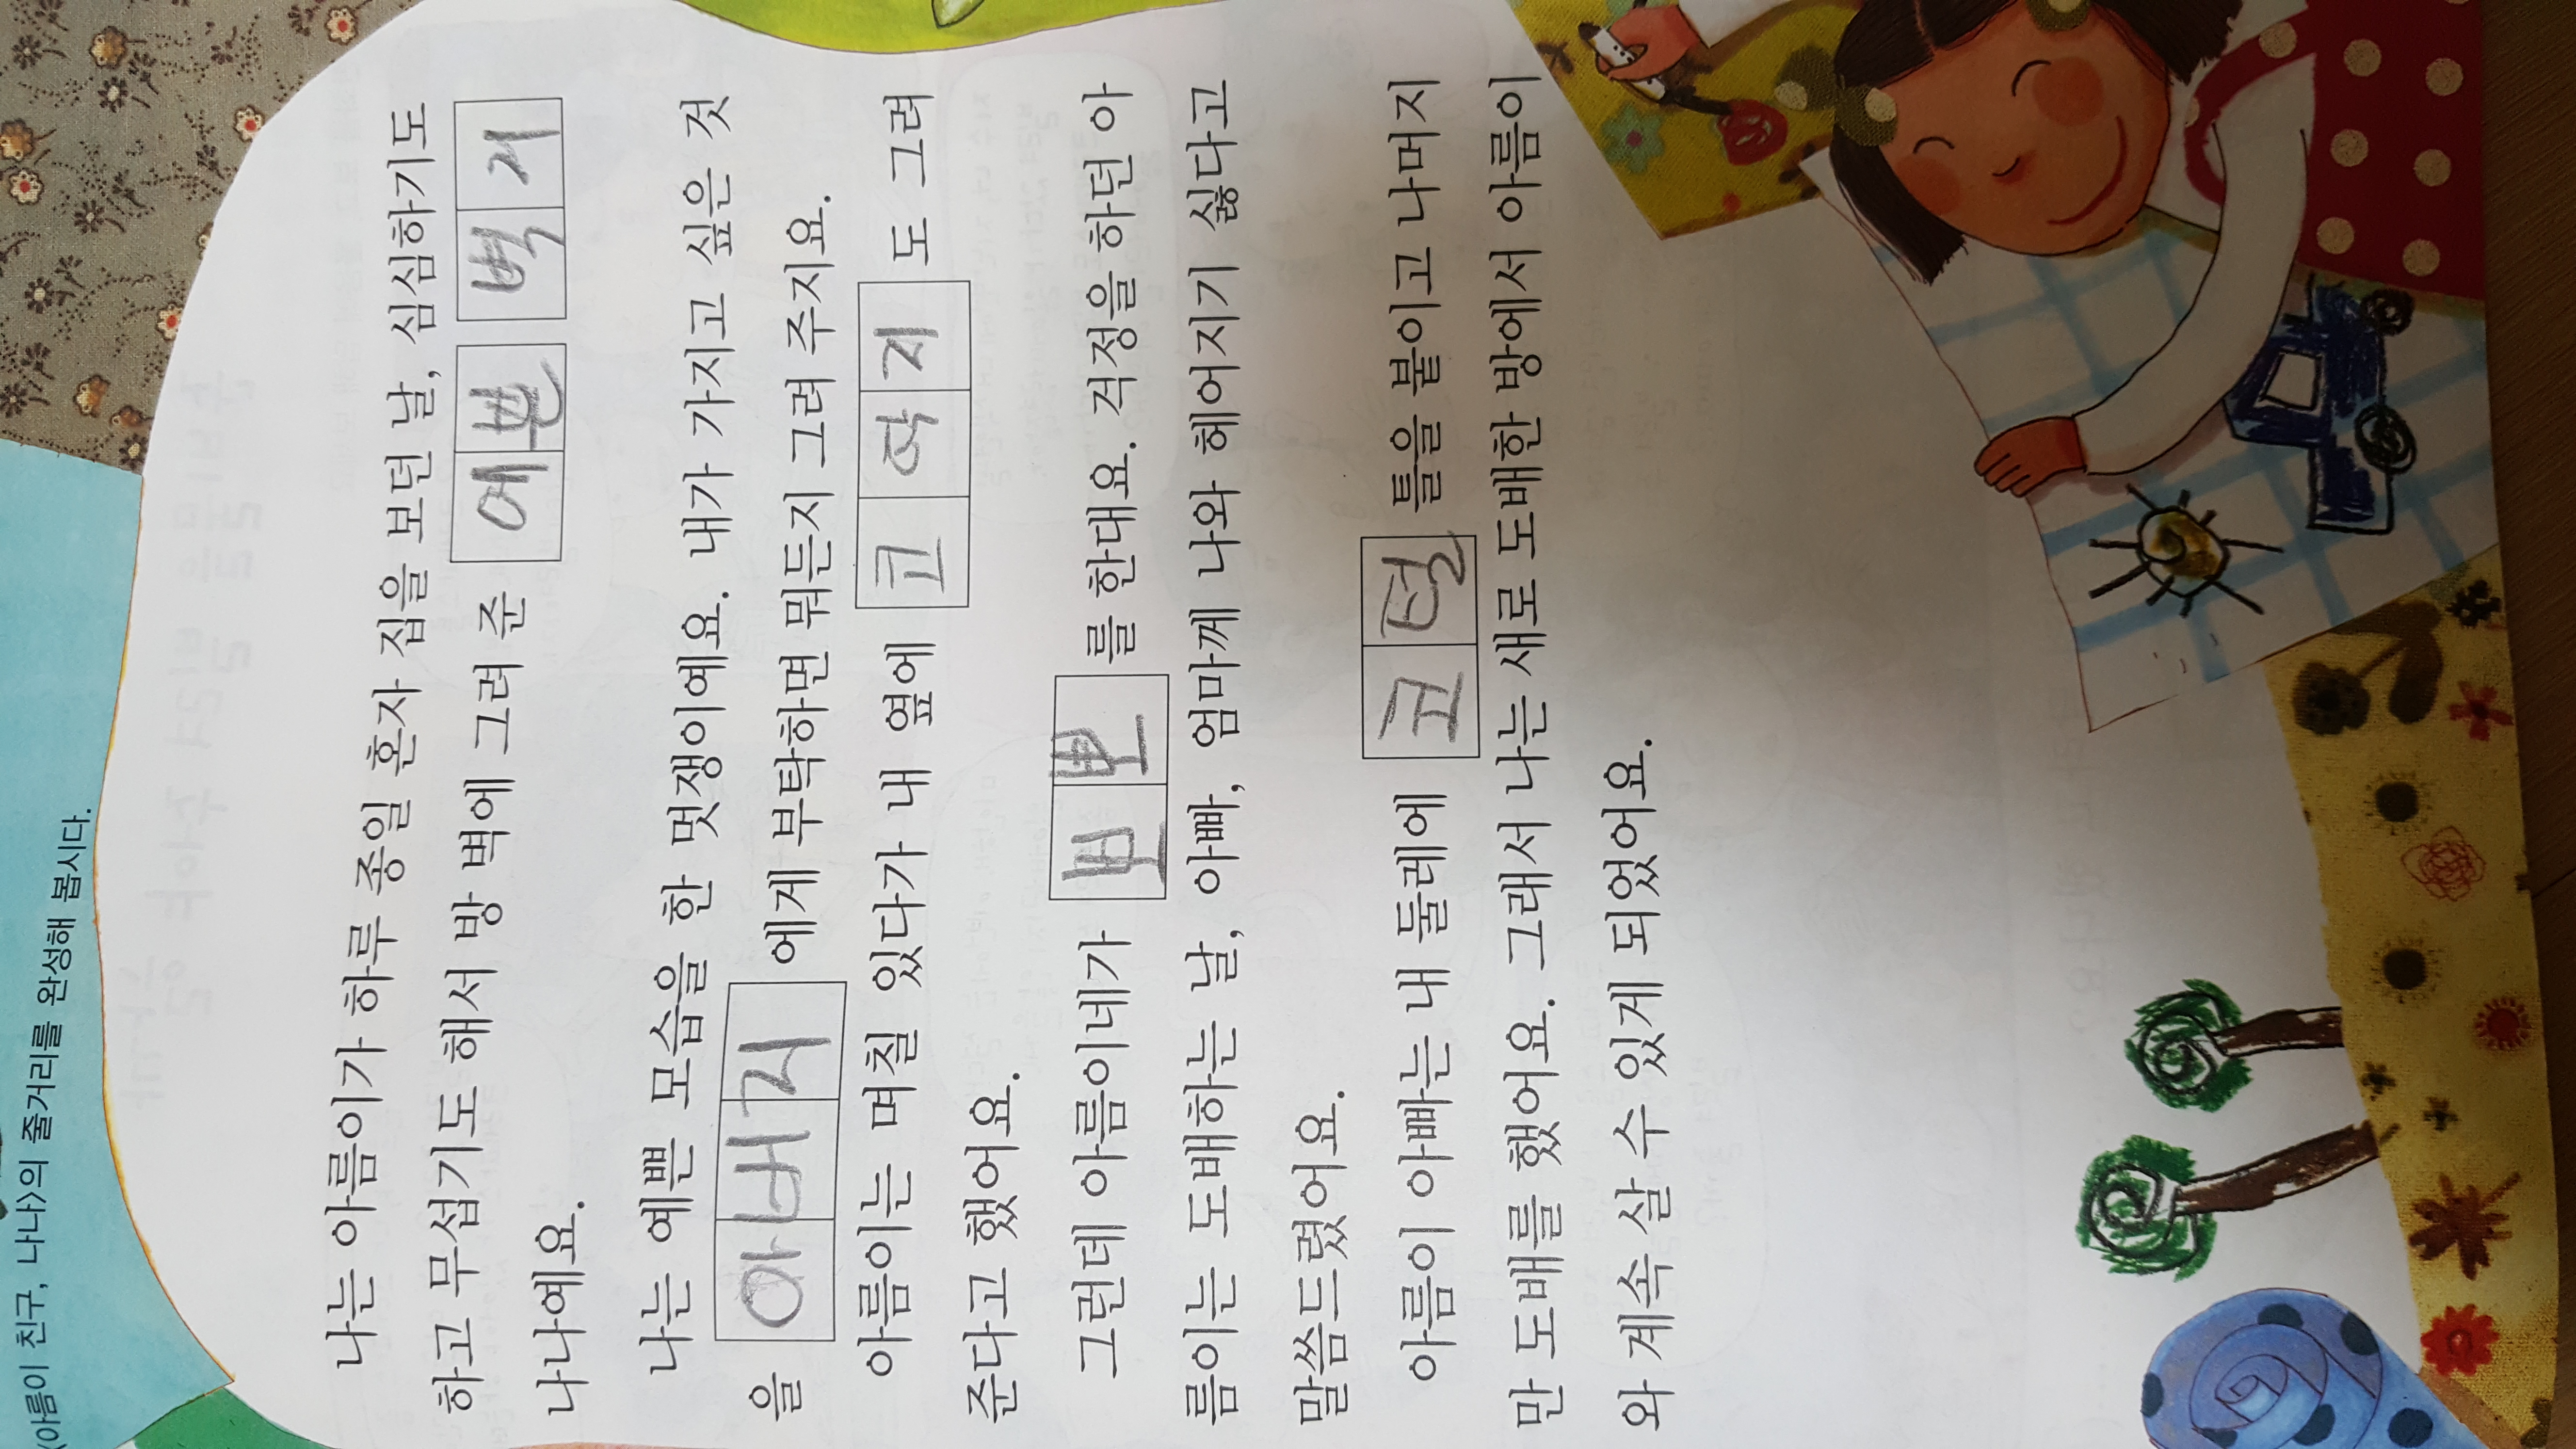 〈아름이 친구, 나나〉의 줄거리를 완성해 봅시다.
나는 아름이가 하루 종일 혼자 집을 보던 날, 심심하기도
하고 무섭기도 해서 방 벽에 그려 준 예쁜 벽지
나나예요.
나는 예쁜 모습을 한 멋쟁이예요. 내가 가지고 싶은 것
을 아버지 에게 부탁하면 뭐든지 그려 주지요.
아름이는 며칠 있다가 내 옆에 고 악 지 도 그려
준다고 했어요.
그런데 아름이네가 를 한대요. 걱정을 하던 아
름이는 도배하는 날, 아빠, 엄마께 나와 헤어지기 싫다고
말씀드렸어요.
아름이 아빠는 내 둘레에 고 털 틀을 붙이고 나머지
만 도배를 했어요. 그래서 나는 새로 도배한 방에서 아름이
와 계속 살 수 있게 되었어요.